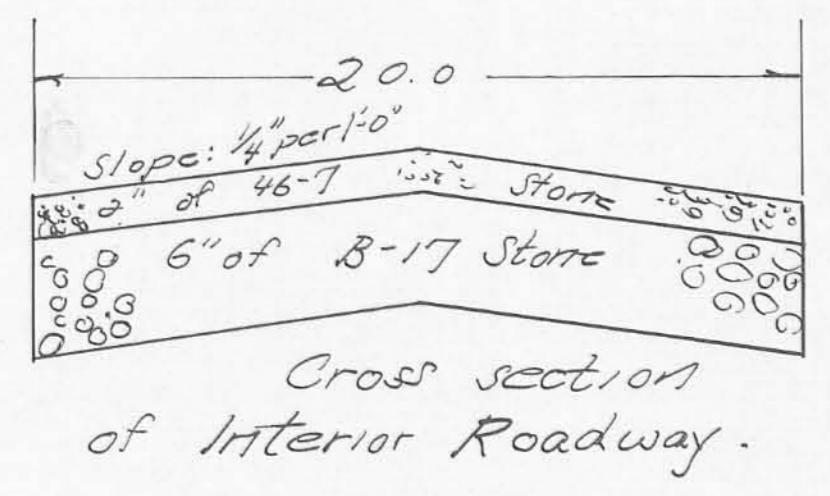 20.0
Slope: 1/4" per 1'-0"
2" of 46-7 Stone
6" of B-17 Stone
Cross section
of Interior Roadway.